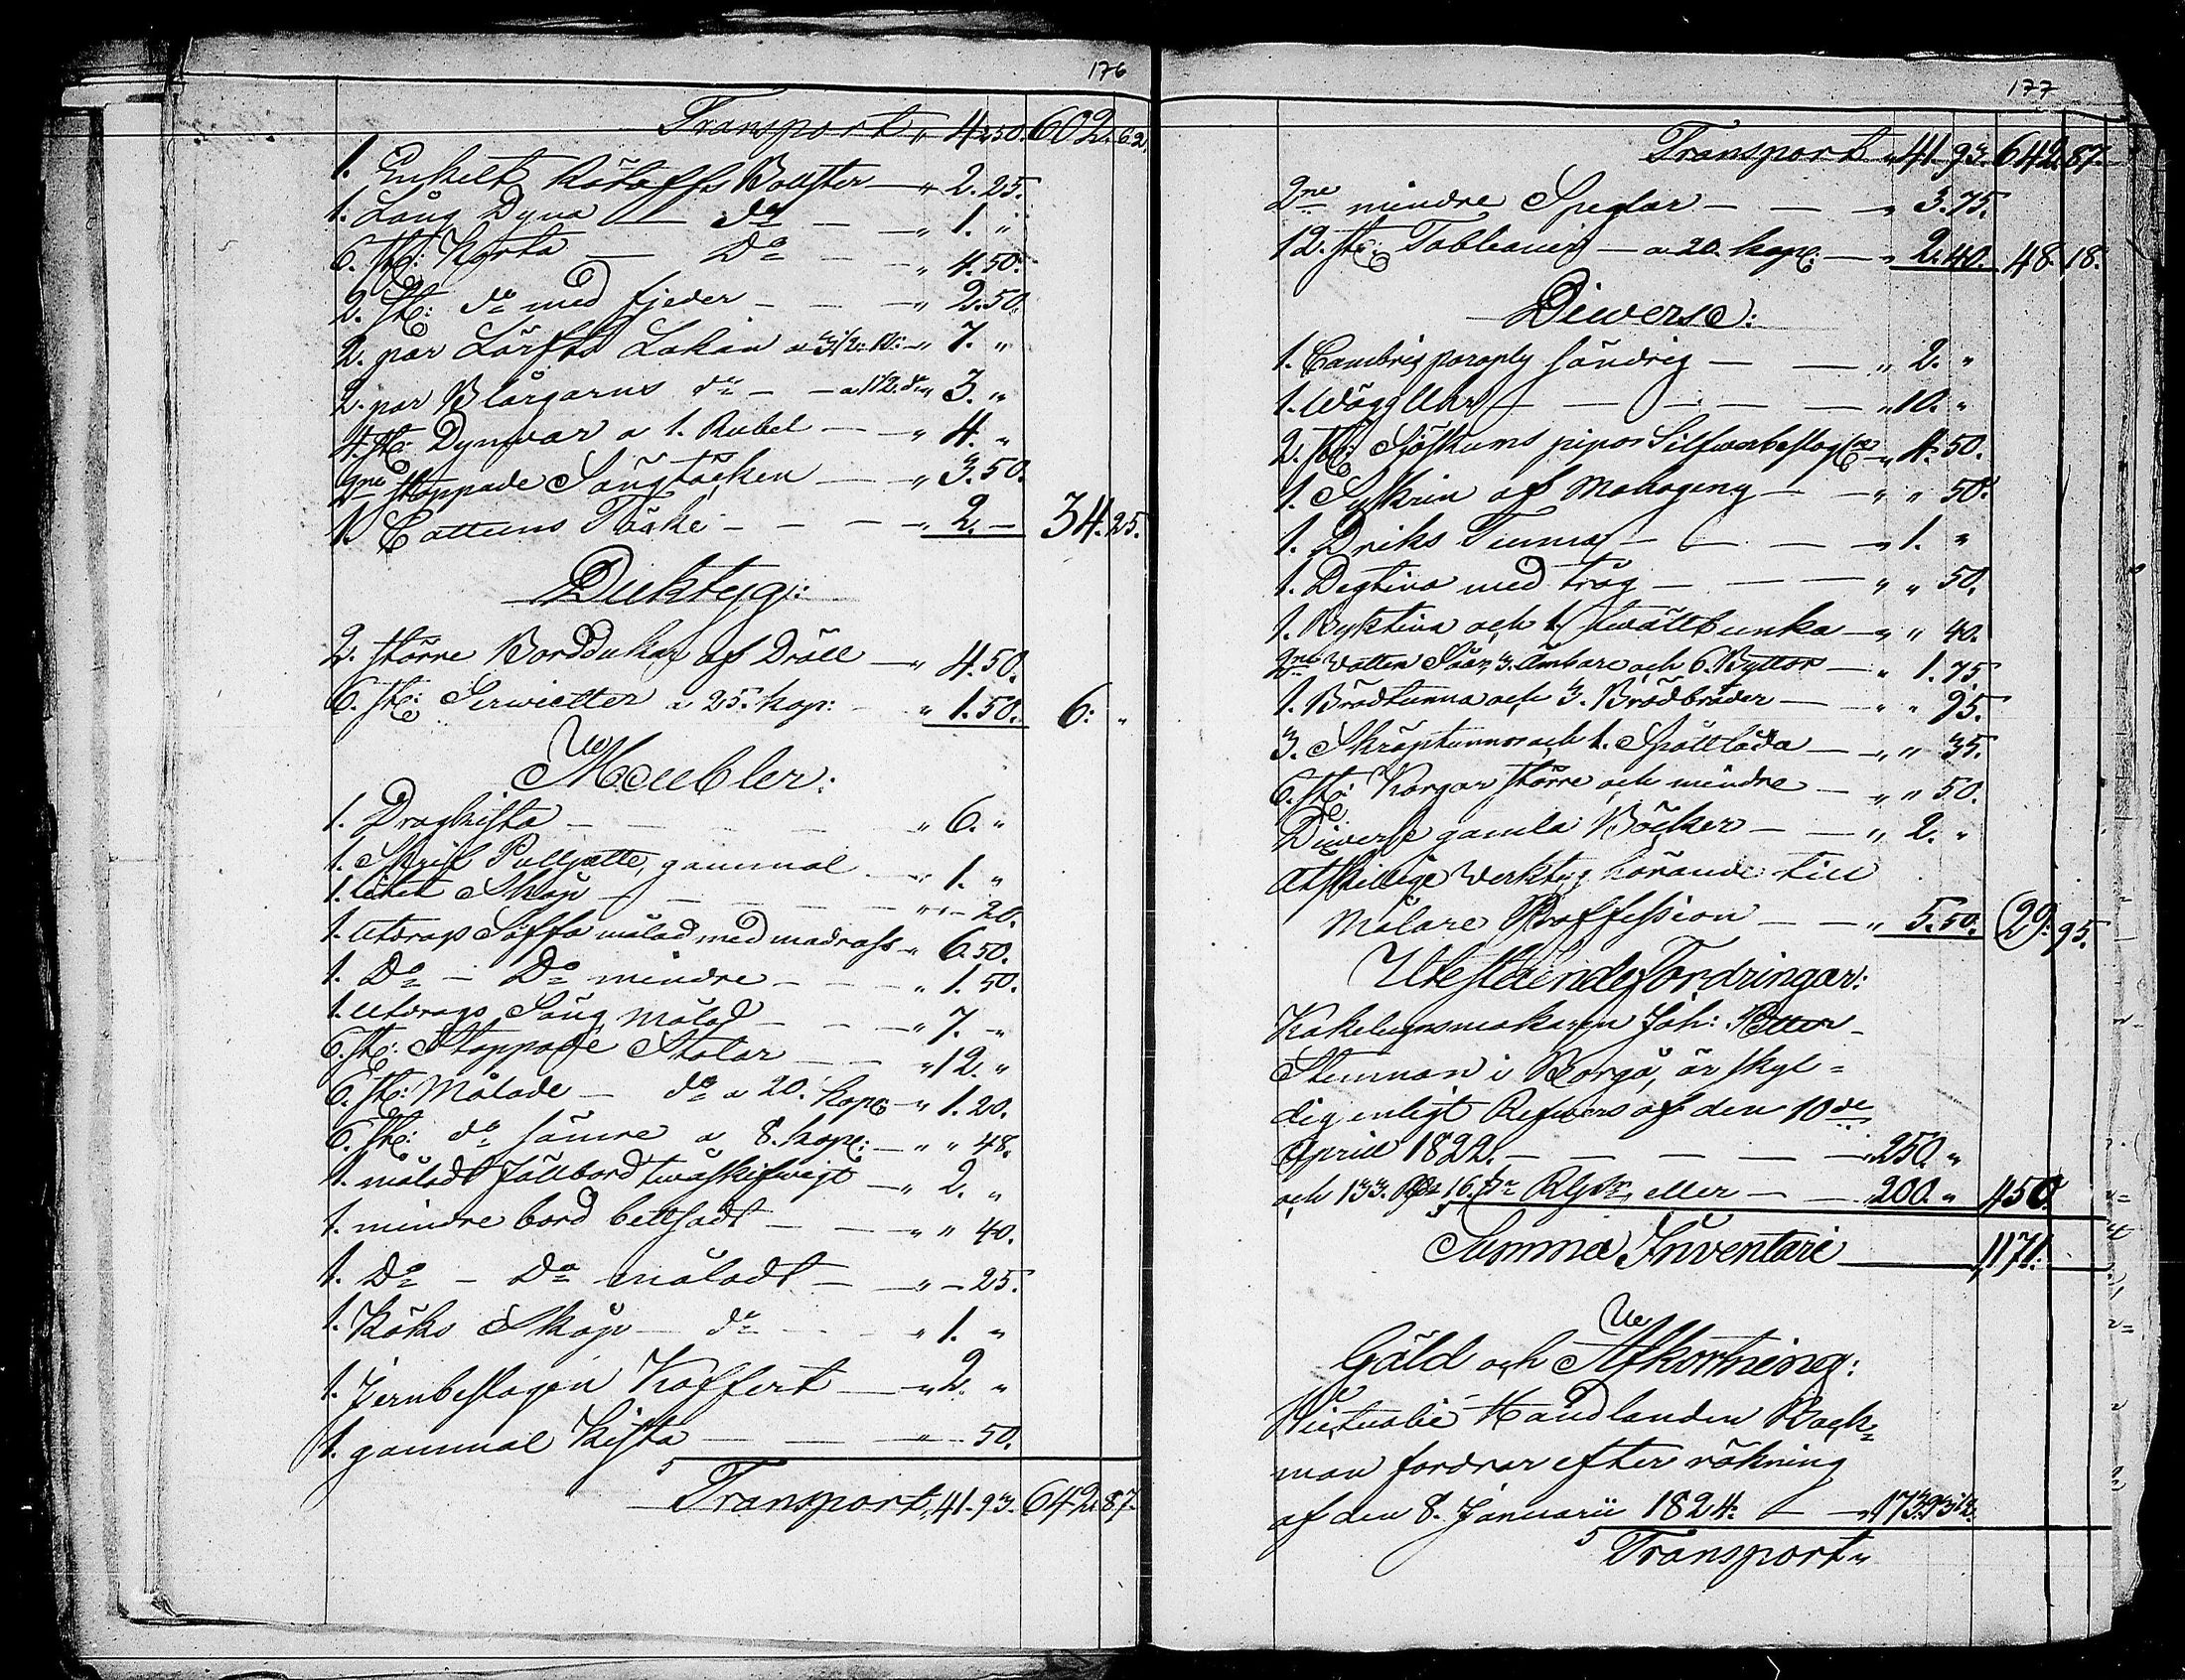 176
Transport " 4. 50. 602. 62.
1. Enkelt Bolster — " 2. 25.
1. Lång Dyna — do — " 1. "
6. st: Korta — Do — " 4. 50.
2. st: do med fjeder — " 2. 50.
2. par Lärfts Lakan a 3 1/2 R: — " 7. "
2. par Blårgarns do — a 1 1/2 do " 3. "
4. st: Dynwar a 1. Rubel — " 4. "
2ne stoppade Sängtäcken — " 3. 50.
1. Cattuns Täcke — " 2. — 34. 25.
Duktyg:
2. större Borddukar af Dräll — " 4. 50.
6. st: Servietter a 25. kop: — " 1. 50. 6: "
Meubler:
1. Dragkista — " 6. "
1. Skrif Pullpätte, gammal — " 1. "
1. litet Skåp — " " 20.
1. Utdrags Soffa målad med madrass " 6. 50.
1. Do — Do mindre — " 1. 50.
1. Utdrags Säng målad — " 7. "
6. st: Stoppade Stolar — " 12. "
6. st: Målade — do a 20. kop: — " 1. 20.
6. st: do sämre a 8. kop: — " " 48.
1. måladt Fällbord twåskifwigt — " 2. "
1. mindre bord bettsadt — " " 40.
1. Do — Do måladt — " — 25.
1. Köks Skåp — do — " 1. "
1. Jernbeslagen Koffert — " 2. "
1. gammal Kista — " — 50.
Transport " 41. 93. 642. 87.
177
Transport " 41. 93. 642. 87.
2ne mindre Speglar — " 3. 75.
12. st: Tableauer — a 20. kop: — " 2. 40. 48. 18.
Diverse:
1. Cambrig paraply söndrig — " 2. "
1. Wägg Uhr — " 10. "
2. st: Sjöskums pipor Silfwerbeslagne — " 4. 50.
1. Syskrin af Mahogeny — " " 50.
1. Driks Tunna — " 1. "
1. Degtina med tråg — " " 50.
1. Byktina och 1. twättbunka — " " 40.
2ne Watten Såar, 3. Ämbare och 6. Byttor — " 1. 75.
1. Brödtunna och 3. Brödbräder — " " 95.
3. Skräptunnor och 1. Spottlåda — " " 35.
6. st: Korgar större och mindre — " " 50.
Diverse gamla Böcker — " 2. "
Åtskillige Werktyg hörande till
Målare Proffession — " 5. 50. 29. 95.
Utestående Fordringar:
Kakelugnsmakaren Joh: Petter
Stenman i Borgå, är skyl=
dig enligt Refwers af den 10de
Aprill 1822. — 250. "
och 133. 16. eller — 200. " 450.
Summa Inventarii — 1,171.
Gäld och Afkortning:
Victualie Handlanden Back=
man fordrar efter räkning
af den 8. Januarii 1824. — " 173. 93 1/2.
Transport "